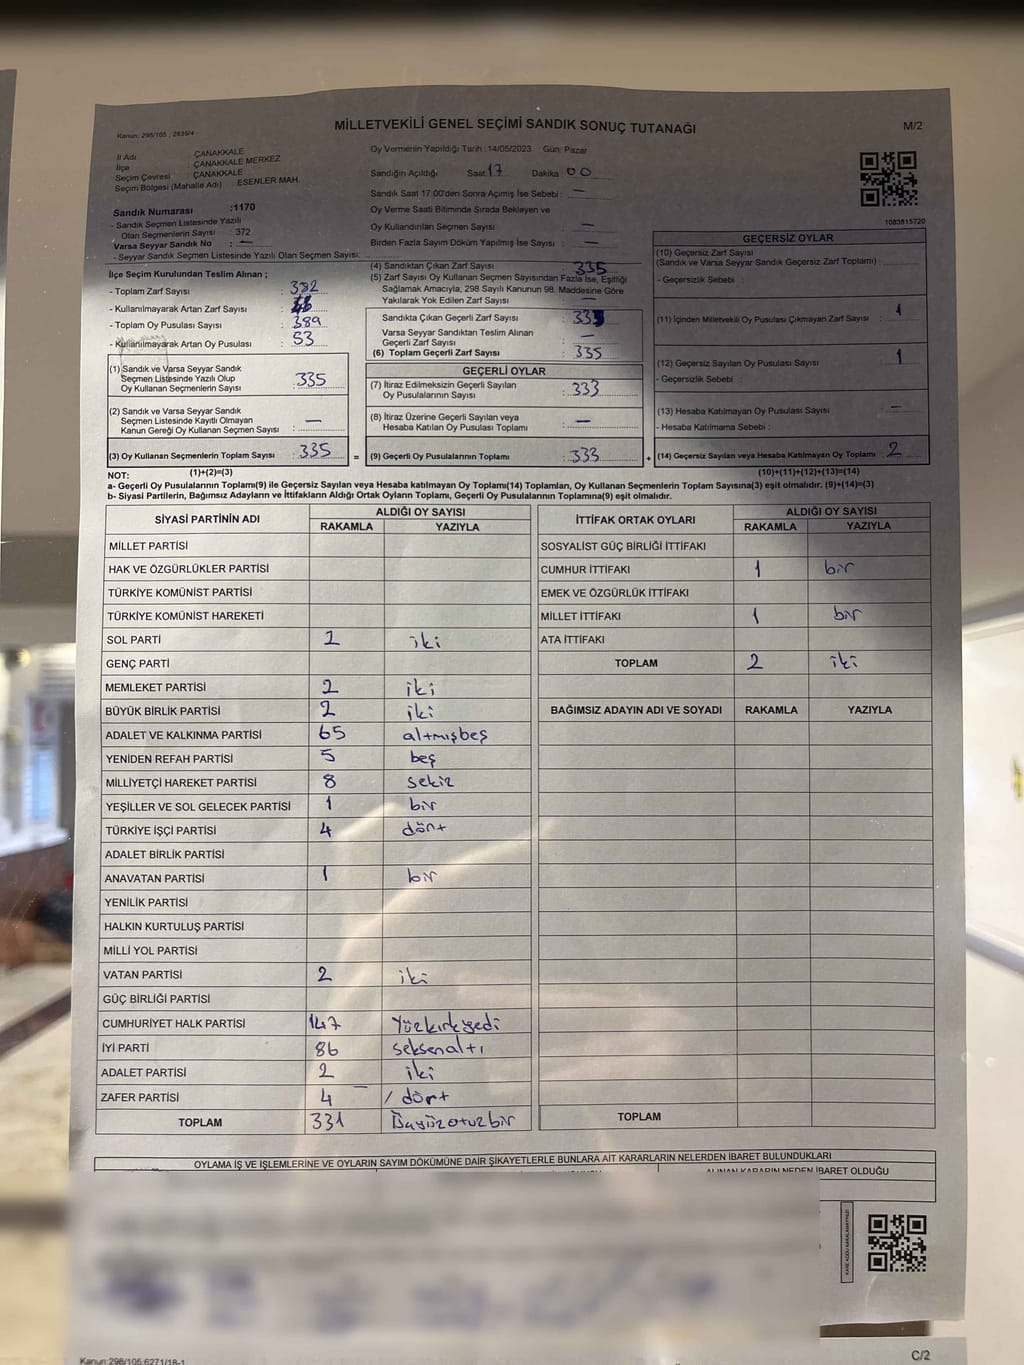 MİLLETVEKİLİ GENEL SEÇİMİ SANDIK SONUÇ TUTANAĞI
M/2
Kanun: 298/105 , 2839/4
İl Adı : ÇANAKKALE
İlçe : ÇANAKKALE MERKEZ
Seçim Çevresi : ÇANAKKALE
Seçim Bölgesi (Mahalle Adı) ESENLER MAH.
Sandık Numarası :1170
- Sandık Seçmen Listesinde Yazılı
Olan Seçmenlerin Sayısı : 372
Varsa Seyyar Sandık No : —
- Seyyar Sandık Seçmen Listesinde Yazılı Olan Seçmen Sayısı:
Oy Vermenin Yapıldığı Tarih :14/05/2023 Gün: Pazar
Sandığın Açıldığı Saat 17 Dakika 00
Sandık Saat 17:00'den Sonra Açımış İse Sebebi : —
Oy Verme Saati Bitiminde Sırada Bekleyen ve
Oy Kullandırılan Seçmen Sayısı : —
Birden Fazla Sayım Döküm Yapılmış İse Sayısı : —
1083815720
İlçe Seçim Kurulundan Teslim Alınan ;
- Toplam Zarf Sayısı :
- Kullanılmayarak Artan Zarf Sayısı :
- Toplam Oy Pusulası Sayısı : 389
- Kullanılmayarak Artan Oy Pusulası : 53
(1) Sandık ve Varsa Seyyar Sandık
Seçmen Listesinde Yazılı Olup
Oy Kullanan Seçmenlerin Sayısı : 335
(2) Sandık ve Varsa Seyyar Sandık
Seçmen Listesinde Kayıtlı Olmayan
Kanun Gereği Oy Kullanan Seçmen Sayısı : —
(3) Oy Kullanan Seçmenlerin Toplam Sayısı : 335 =
(4) Sandıktan Çıkan Zarf Sayısı : 335
(5) Zarf Sayısı Oy Kullanan Seçmen Sayısından Fazla İse, Eşitliği
Sağlamak Amacıyla; 298 Sayılı Kanunun 98. Maddesine Göre
Yakılarak Yok Edilen Zarf Sayısı : —
Sandıkta Çıkan Geçerli Zarf Sayısı : 335
Varsa Seyyar Sandıktan Teslim Alınan
Geçerli Zarf Sayısı : —
(6) Toplam Geçerli Zarf Sayısı : 335
GEÇERLİ OYLAR
(7) İtiraz Edilmeksizin Geçerli Sayılan
Oy Pusulalarının Sayısı : 333
(8) İtiraz Üzerine Geçerli Sayılan veya
Hesaba Katılan Oy Pusulası Toplamı : —
(9) Geçerli Oy Pusulalarının Toplamı : 333 +
GEÇERSİZ OYLAR
(10) Geçersiz Zarf Sayısı
(Sandık ve Varsa Seyyar Sandık Geçersiz Zarf Toplamı) :
- Geçersizlik Sebebi :
(11) İçinden Milletvekili Oy Pusulası Çıkmayan Zarf Sayısı : 1
(12) Geçersiz Sayılan Oy Pusulası Sayısı : 1
- Geçersizlik Sebebi :
(13) Hesaba Katılmayan Oy Pusulası Sayısı : —
- Hesaba Katılmama Sebebi :
(14) Geçersiz Sayılan veya Hesaba Katılmayan Oy Toplamı : 2
NOT: (1)+(2)=(3) (10)+(11)+(12)+(13)=(14)
a- Geçerli Oy Pusulalarının Toplamı(9) ile Geçersiz Sayılan veya Hesaba katılmayan Oy Toplamı(14) Toplamları, Oy Kullanan Seçmenlerin Toplam Sayısına(3) eşit olmalıdır. (9)+(14)=(3)
b- Siyasi Partilerin, Bağımsız Adayların ve İttifakların Aldığı Ortak Oyların Toplamı, Geçerli Oy Pusulalarının Toplamına(9) eşit olmalıdır.
SİYASİ PARTİNİN ADI ALDIĞI OY SAYISI
RAKAMLA YAZIYLA
MİLLET PARTİSİ
HAK VE ÖZGÜRLÜKLER PARTİSİ
TÜRKİYE KOMÜNİST PARTİSİ
TÜRKİYE KOMÜNİST HAREKETİ
SOL PARTİ 2 iki
GENÇ PARTİ
MEMLEKET PARTİSİ 2 iki
BÜYÜK BİRLİK PARTİSİ 2 iki
ADALET VE KALKINMA PARTİSİ 65 altmışbeş
YENİDEN REFAH PARTİSİ 5 beş
MİLLİYETÇİ HAREKET PARTİSİ 8 sekiz
YEŞİLLER VE SOL GELECEK PARTİSİ 1 bir
TÜRKİYE İŞÇİ PARTİSİ 4 dört
ADALET BİRLİK PARTİSİ
ANAVATAN PARTİSİ 1 bir
YENİLİK PARTİSİ
HALKIN KURTULUŞ PARTİSİ
MİLLİ YOL PARTİSİ
VATAN PARTİSİ 2 iki
GÜÇ BİRLİĞİ PARTİSİ
CUMHURİYET HALK PARTİSİ 147 Yüzkırkyedi
İYİ PARTİ 86 seksenaltı
ADALET PARTİSİ 2 iki
ZAFER PARTİSİ 4 dört
TOPLAM 331 Üçyüzotuzbir
İTTİFAK ORTAK OYLARI ALDIĞI OY SAYISI
RAKAMLA YAZIYLA
SOSYALİST GÜÇ BİRLİĞİ İTTİFAKI
CUMHUR İTTİFAKI 1 bir
EMEK VE ÖZGÜRLÜK İTTİFAKI
MİLLET İTTİFAKI 1 bir
ATA İTTİFAKI
TOPLAM 2 iki
BAĞIMSIZ ADAYIN ADI VE SOYADI RAKAMLA YAZIYLA
TOPLAM
OYLAMA İŞ VE İŞLEMLERİNE VE OYLARIN SAYIM DÖKÜMÜNE DAİR ŞİKAYETLERLE BUNLARA AİT KARARLARIN NELERDEN İBARET BULUNDUKLARI
ALINAN KARARIN NEDEN İBARET OLDUĞU
Kanun: 298/105;6271/18-1
C/2